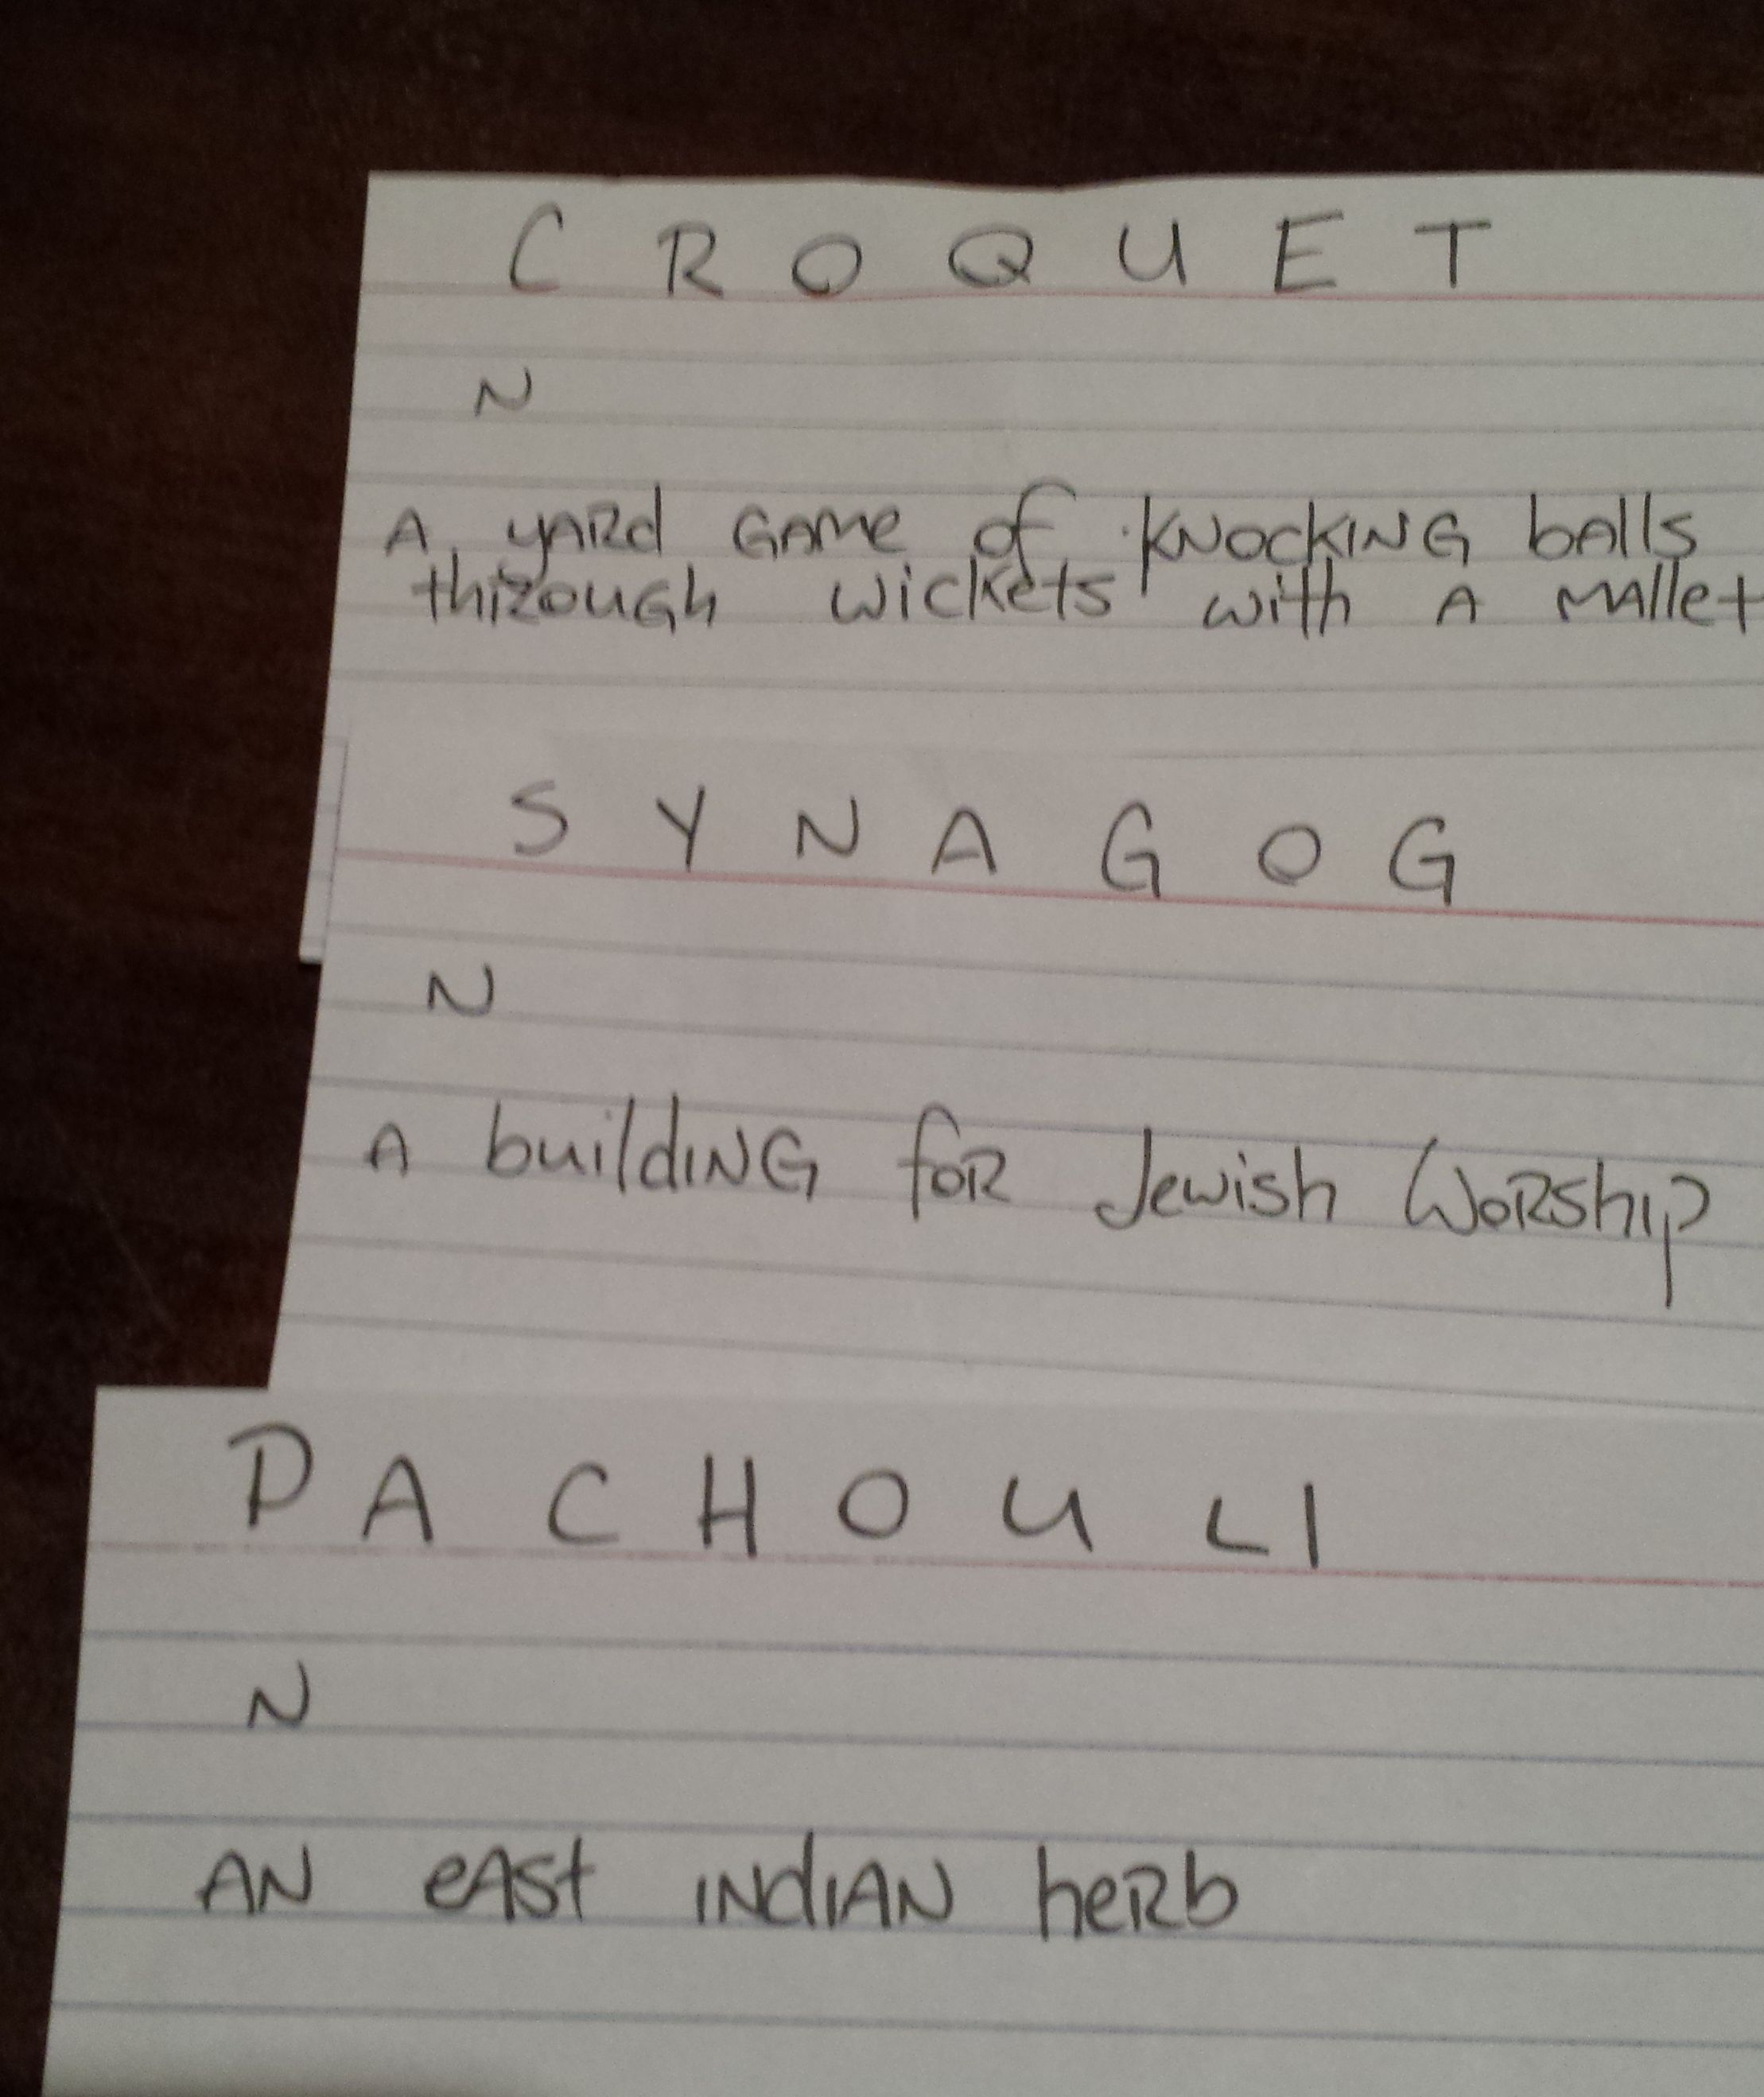 C R O Q U E T
N
A yARd GAMe of KNockING bAlls
thRouGh wickets with A mAllet
S Y N A G O G
N
A buildING foR Jewish WoRship
P A C H O U L I
N
AN eAst INdIAN heRb